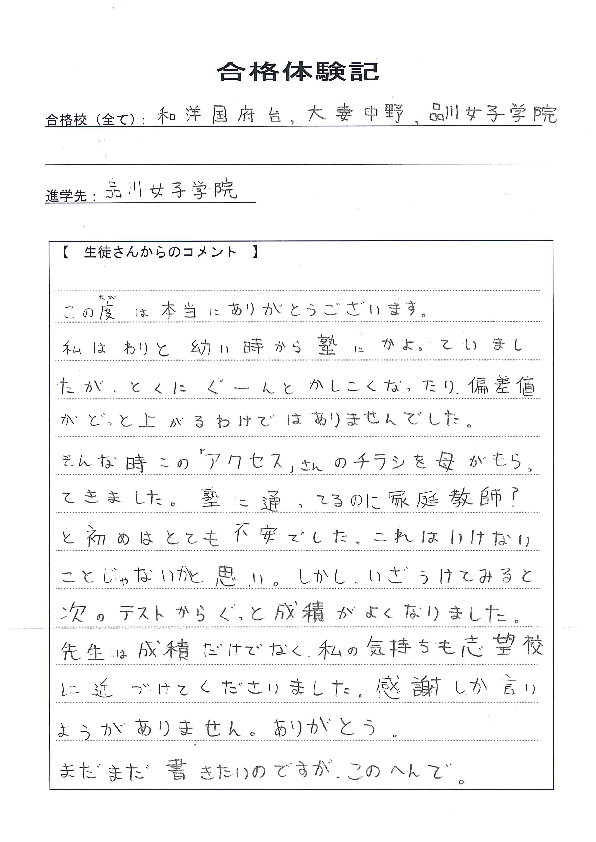 合格体験記
合格校（全て）： 和洋国府台, 大妻中野, 品川女子学院
進学先： 品川女子学院
【 生徒さんからのコメント 】
たび
この度は本当にありがとうございます。
私はわりと幼い時から塾にかよっていまし
たが、とくにぐーんとかしこくなったり、偏差値
がどっと上がるわけではありませんでした。
そんな時この「アクセス」さんのチラシを母がもらっ
てきました。塾に通ってるのに家庭教師？
と初めはとても不安でした。これはいけない
ことじゃないかと思い。しかし、いざうけてみると
次のテストからぐっと成積がよくなりました。
先生は成積だけでなく、私の気持ちも志望校
に近づけてくださいました。感謝しか言い
ようがありません。ありがとう。
まだまだ書きたいのですが、このへんで。